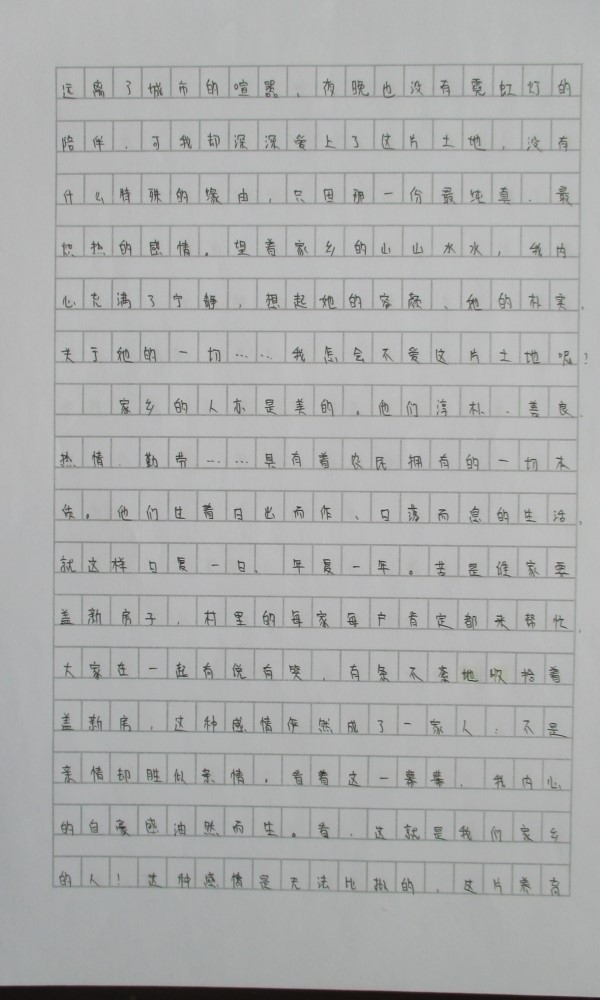 远离了城市的喧嚣，夜晚也没有霓虹灯的
陪伴，可我却深深爱上了这片土地，没有
什么特殊的缘由，只因那一份最纯真、最
炽热的感情。望着家乡的山山水水，我内
心充满了宁静，想起她的容颜、她的朴实，
关于她的一切……我怎会不爱这片土地呢？
家乡的人亦是美的。他们淳朴、善良、
热情、勤劳……具有着农民拥有的一切本
质。他们过着日出而作、日落而息的生活，
就这样日复一日、年复一年。若是谁家要
盖新房子，村里的每家每户肯定都来帮忙，
大家在一起有说有笑，有条不紊地收拾着
盖新房，这种感情俨然成了一家人：不是
亲情却胜似亲情。看着这一幕幕，我内心
的自豪感油然而生。看，这就是我们家乡
的人！这种感情是无法比拟的，这片养育